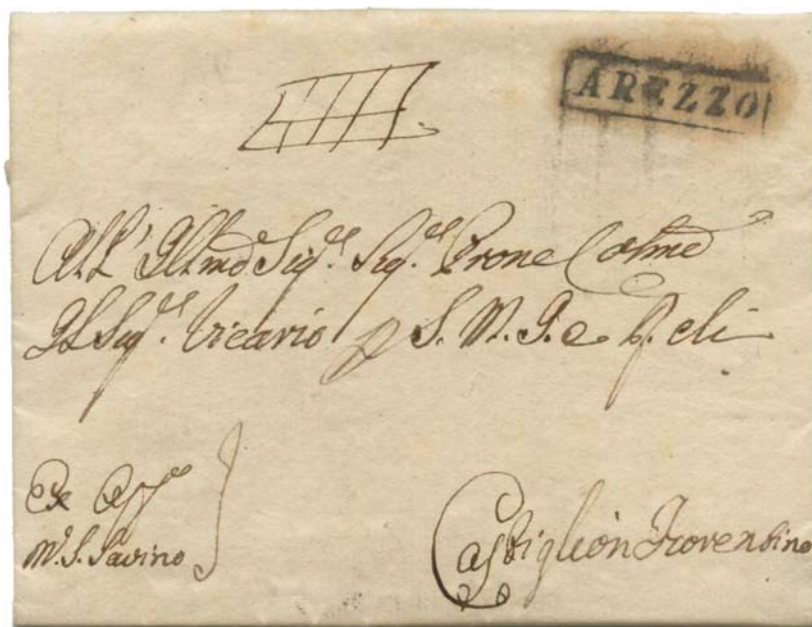 AREZZO
All' Ill.mo Sig.re Sig.re Prone Colmo
Il Sig.re Vicario p S. M. I. e R. di
Ex Off.o
M. S. Savino
Castiglion Fiorentino